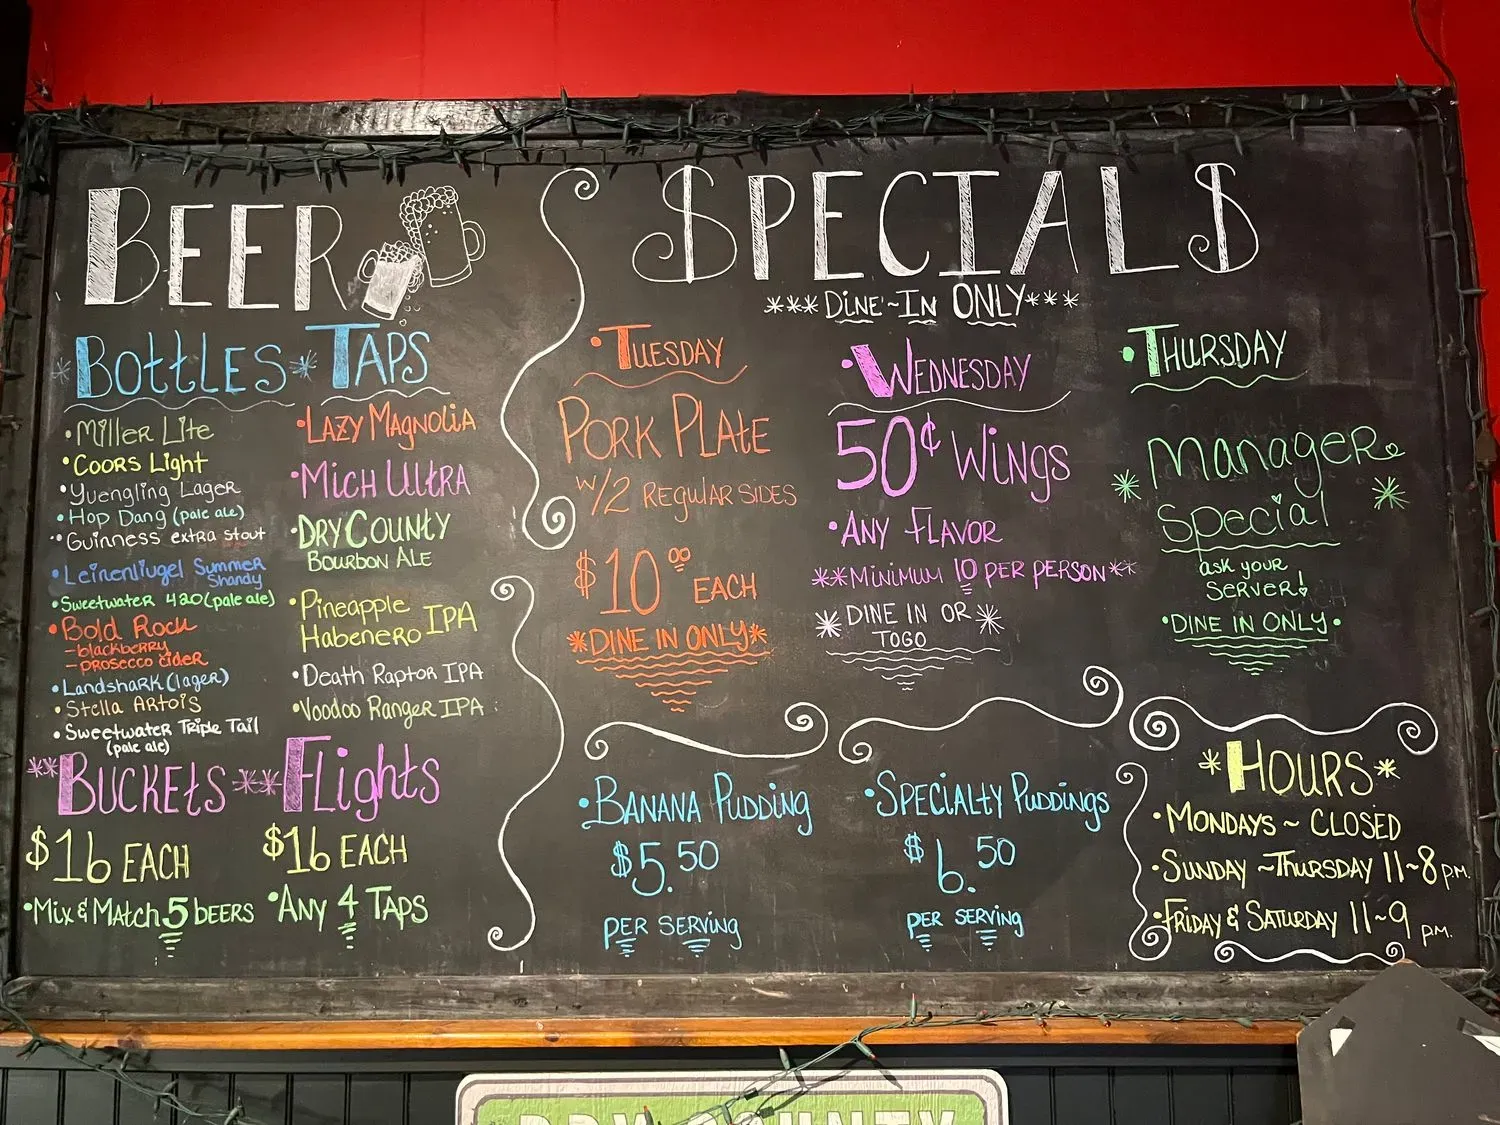 BEER
*BottLES*
• Miller Lite
• Coors Light
• Yuengling Lager
• Hop Dang (pale ale)
• Guinness extra stout
• Leinenliugel Summer
Shandy
• Sweetwater 420 (pale ale)
• Bold Rock
- blackberry
- prosecco cider
• Landshark (lager)
• Stella Artois
• Sweetwater Triple Tail
(pale ale)
TAPS
• LAZY MAGNOLiA
• MICH ULtRA
• DRY COUNtY
BOURBON ALE
• Pineapple
Habenero IPA
• Death Raptor IPA
• Voodoo Ranger IPA
**BUCKEtS**
$16 EACH
• Mix & MAtch 5 BEERS
FLights
$16 EACH
• ANY 4 TAPS
$PECIAL$
***DiNE~IN ONLY***
• TUESDAY
PORK PLAtE
w/2 REGULAR SIDES
$10.00 EACH
*DINE IN ONLY*
• WEDNESDAY
50¢ WiNGS
• ANY FLAVOR
**MiNiMUM 10 PER PERSON**
* DINE IN OR *
TOGO
• THURSDAY
* MANAGER *
Special
ask your
SERVER!
• DINE IN ONLY •
• BANANA PUDDiNG
$5.50
PER SERViNG
• SPECIALtY PUDDiNGS
$6.50
PER SERViNG
*HOURS*
• MONDAYS ~ CLOSED
• SUNDAY ~ THURSDAY 11~8 P.M.
• FRiDAY & SATURDAY 11~9 P.M.
DRY COUNTY